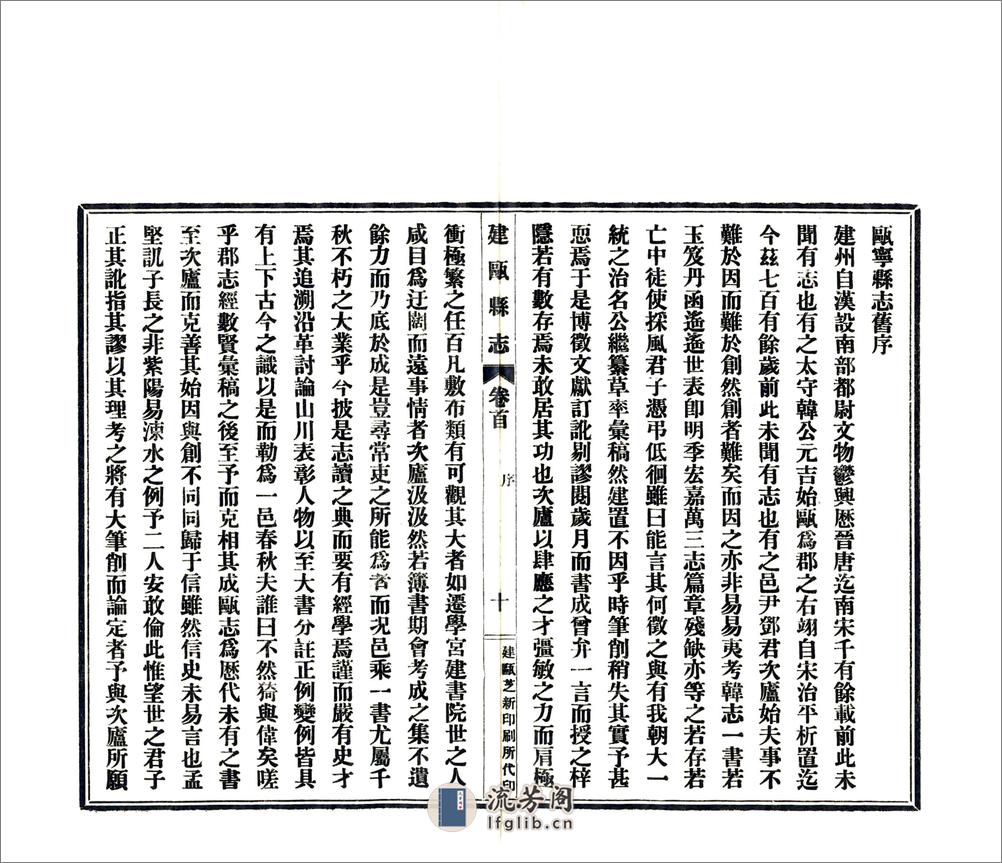 甌寧縣志舊序
建州自漢設南部都尉文物鬱興歷晉唐迄南宋千有餘載前此未
聞有志也有之太守韓公元吉始甌爲郡之右翊自宋治平析置迄
今茲七百有餘歲前此未聞有志也有之邑尹鄧君次廬始夫事不
難於因而難於創然創者難矣而因之亦非易易夷考韓志一書若
玉笈丹函遙遙世表卽明季宏嘉萬三志篇章殘缺亦等之若存若
亡中徒使採風君子憑弔低徊雖曰能言其何徵之與有我朝大一
統之治名公繼纂草率彙稿然建置不因乎時筆削稍失其實予甚
恧焉于是博徵文獻訂訛剔謬閱歲月而書成曾弁一言而授之梓
隱若有數存焉未敢居其功也次廬以肆應之才彊敏之力而肩極
建甌縣志
卷首
序
十
建甌芝新印刷所代印
衝極繁之任百凡敷布類有可觀其大者如遷學宮建書院世之人
咸目爲迂闊而遠事情者次廬汲汲然若簿書期會考成之集不遺
餘力而乃底於成是豈尋常吏之所能爲者而况邑乘一書尤屬千
秋不朽之大業乎今披是志讀之典而要有經學焉謹而嚴有史才
焉其追溯沿革討論山川表彰人物以至大書分註正例變例皆具
有上下古今之識以是而勒爲一邑春秋夫誰曰不然猗與偉矣嗟
乎郡志經數賢彙稿之後至予而克相其成甌志爲歷代未有之書
至次廬而克善其始因與創不同同歸于信雖然信史未易言也孟
堅譏子長之非紫陽易涑水之例予二人安敢倫此惟望世之君子
正其訛指其謬以其理考之將有大筆削而論定者予與次廬所願
流芳阁
lfglib.cn